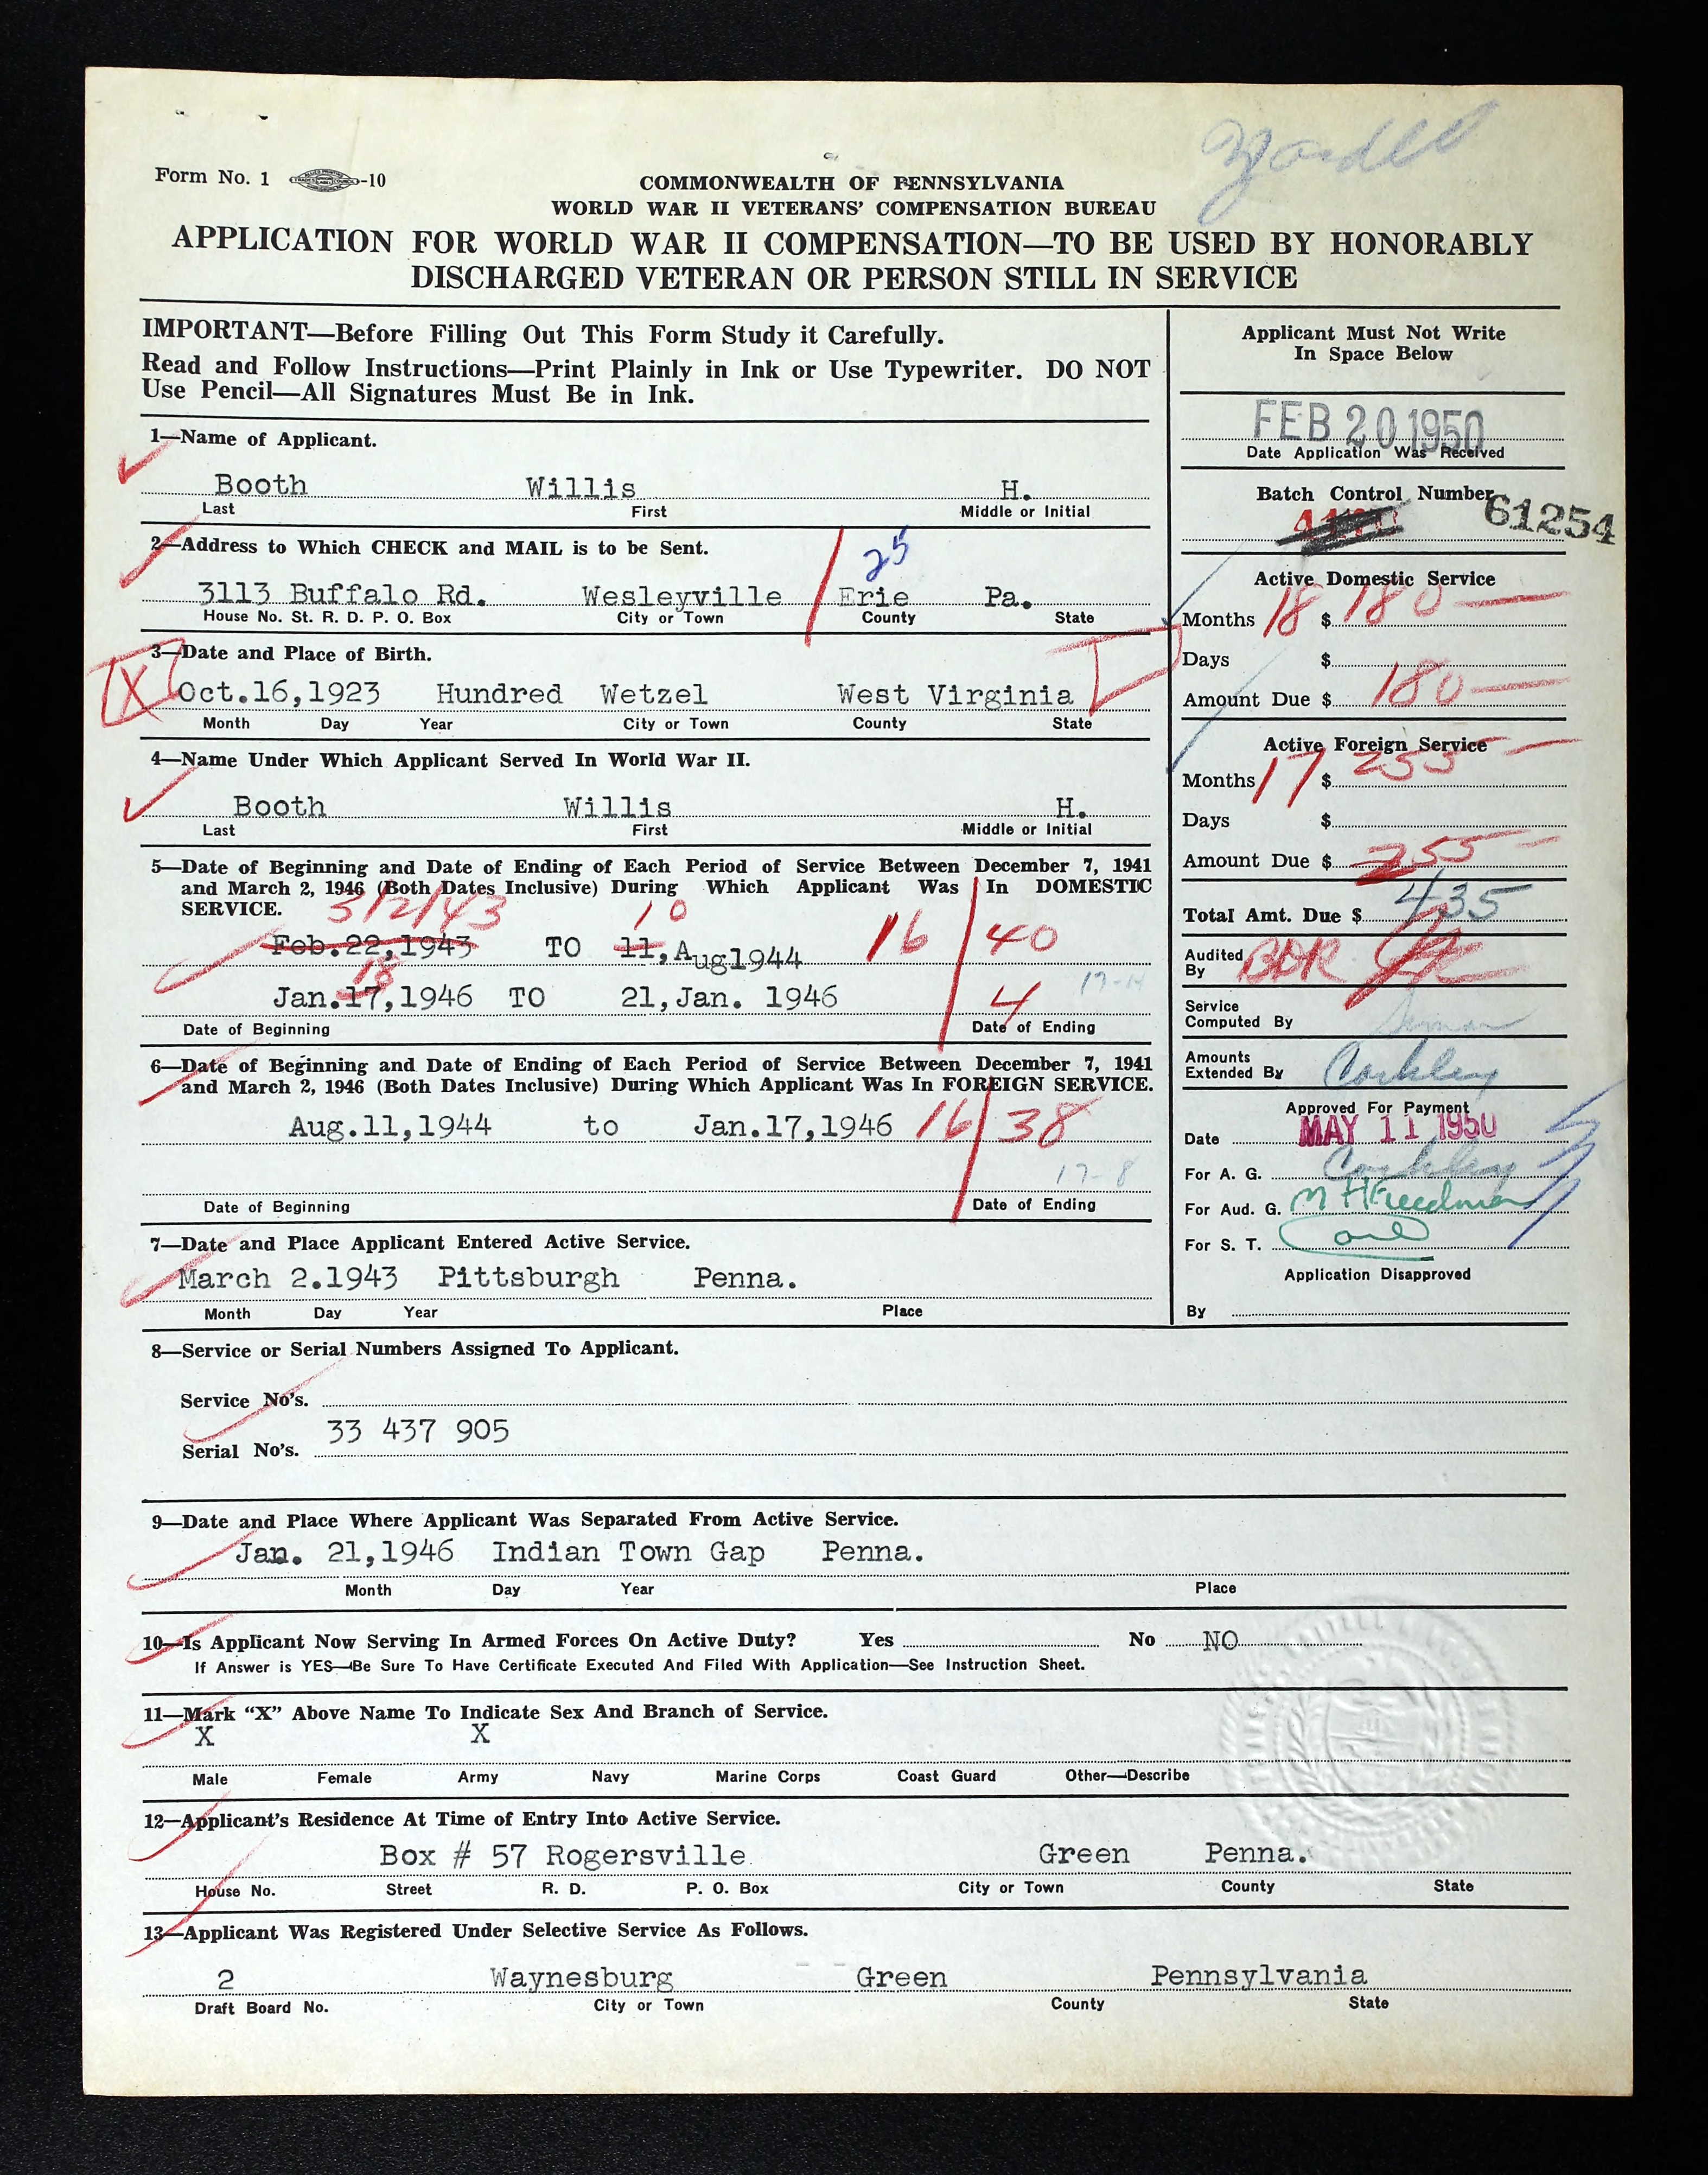 Form No. 1 -10
COMMONWEALTH OF PENNSYLVANIA
WORLD WAR II VETERANS' COMPENSATION BUREAU
APPLICATION FOR WORLD WAR II COMPENSATION—TO BE USED BY HONORABLY
DISCHARGED VETERAN OR PERSON STILL IN SERVICE
IMPORTANT—Before Filling Out This Form Study it Carefully.
Read and Follow Instructions—Print Plainly in Ink or Use Typewriter. DO NOT
Use Pencil—All Signatures Must Be in Ink.
1—Name of Applicant.
Booth Willis H.
Last First Middle or Initial
2—Address to Which CHECK and MAIL is to be Sent.
25
3113 Buffalo Rd. Wesleyville Erie Pa.
House No. St. R. D. P. O. Box City or Town County State
3—Date and Place of Birth.
X Oct.16,1923 Hundred Wetzel West Virginia
Month Day Year City or Town County State
4—Name Under Which Applicant Served In World War II.
Booth Willis H.
Last First Middle or Initial
5—Date of Beginning and Date of Ending of Each Period of Service Between December 7, 1941
and March 2, 1946 (Both Dates Inclusive) During Which Applicant Was In DOMESTIC
SERVICE.
3/2/43 10
Feb.22,1943 TO 11,Aug1944 16 40
18
Jan.17,1946 TO 21,Jan. 1946 4 17-14
Date of Beginning Date of Ending
6—Date of Beginning and Date of Ending of Each Period of Service Between December 7, 1941
and March 2, 1946 (Both Dates Inclusive) During Which Applicant Was In FOREIGN SERVICE.
Aug.11,1944 to Jan.17,1946 16 38
17-8
Date of Beginning Date of Ending
7—Date and Place Applicant Entered Active Service.
March 2.1943 Pittsburgh Penna.
Month Day Year Place
Applicant Must Not Write
In Space Below
FEB 20 1950
Date Application Was Received
Batch Control Number
61254
Active Domestic Service
Months 18 $ 180 —
Days $
Amount Due $ 180 —
Active Foreign Service
Months 17 $ 255 —
Days $
Amount Due $ 255 —
Total Amt. Due $ 435
Audited
By BDR
Service
Computed By
Amounts
Extended By Coakley
Approved For Payment
Date MAY 11 1950
For A. G. Coakley
For Aud. G. M H Freedman
For S. T.
Application Disapproved
By
8—Service or Serial Numbers Assigned To Applicant.
Service No's.
33 437 905
Serial No's.
9—Date and Place Where Applicant Was Separated From Active Service.
Jan. 21,1946 Indian Town Gap Penna.
Month Day Year Place
10—Is Applicant Now Serving In Armed Forces On Active Duty? Yes No NO
If Answer is YES—Be Sure To Have Certificate Executed And Filed With Application—See Instruction Sheet.
11—Mark "X" Above Name To Indicate Sex And Branch of Service.
X X
Male Female Army Navy Marine Corps Coast Guard Other—Describe
12—Applicant's Residence At Time of Entry Into Active Service.
Box # 57 Rogersville Green Penna.
House No. Street R. D. P. O. Box City or Town County State
13—Applicant Was Registered Under Selective Service As Follows.
2 Waynesburg Green Pennsylvania
Draft Board No. City or Town County State